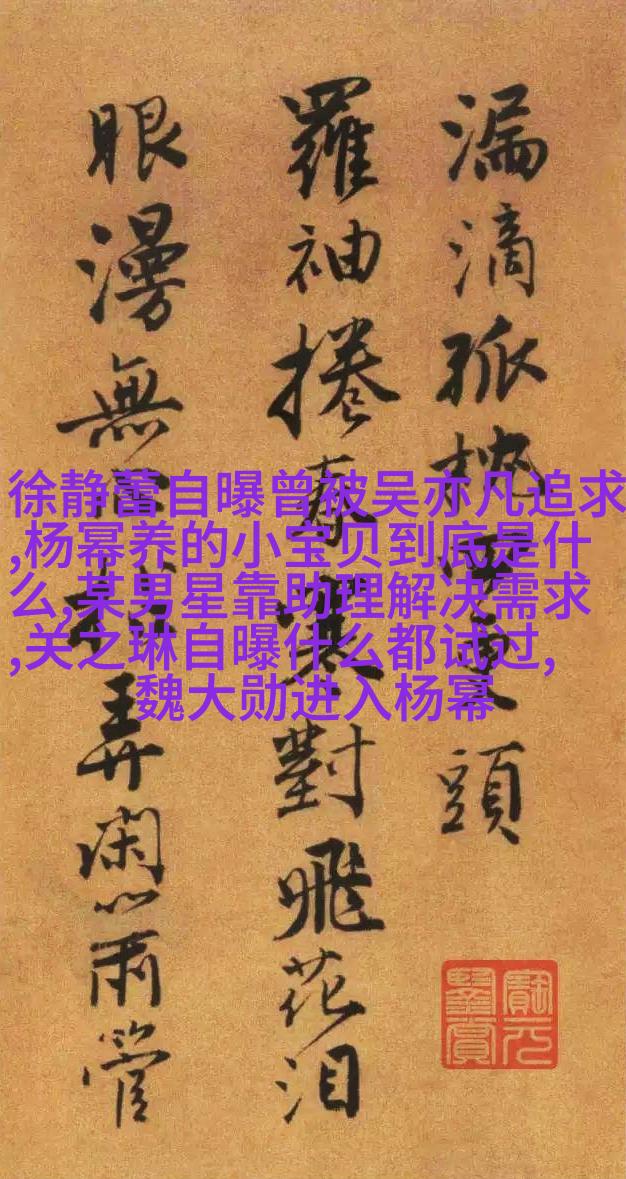 漏滴孤更頭
羅袖捲春寒對飛花泪
眼漫無弄閑
管
徐静蕾自曝曾被吴亦凡追求
,杨幂养的小宝贝到底是什
么,某男星靠助理解决需求
,关之琳自曝什么都试过,
魏大勋进入杨幂